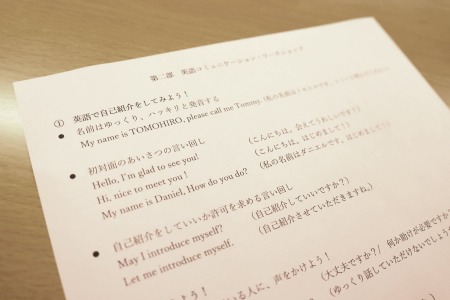 第二部 英語コミュニケーション・ワークショップ
① 英語で自己紹介をしてみよう！
● 名前はゆっくり、ハッキリと発音する
My name is TOMOHIRO, please call me Tommy. (私の名前は
● 初対面のあいさつの言い回し
Hello, I'm glad to see you! (こんにちは、会えてうれしいです！)
Hi, nice to meet you ! (こんにちは、はじめまして！)
My name is Daniel, How do you do? (私の名前はダニエルです、はじめまして！)
● 自己紹介をしていいか許可を求める言い回し
May I introduce myself? (自己紹介していいですか？)
Let me introduce myself. (自己紹介させていただきますね。)
いる人に、声をかけよう！
(大丈夫ですか？/ 何か助けが必要ですか？
(ゆっくり話していただけないでしょう